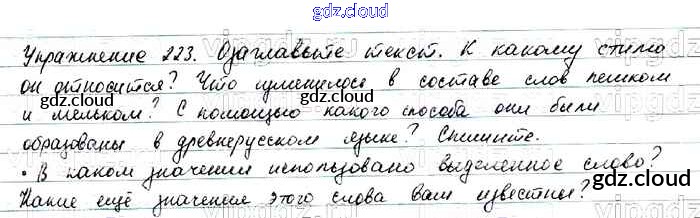 gdz.cloud
Упражнение 223. Озаглавьте текст. К какому стилю
он относится? Что изменилось в составе слов пешком
gdz.cloud gdz.cloud
и мельком? С помощью какого способа они были
образованы в древнерусском языке? Спишите.
• В каком значении использовано выделенное слово?
Какие ещё значение этого слова вам известны?
gdz.cloud gdz.cloud